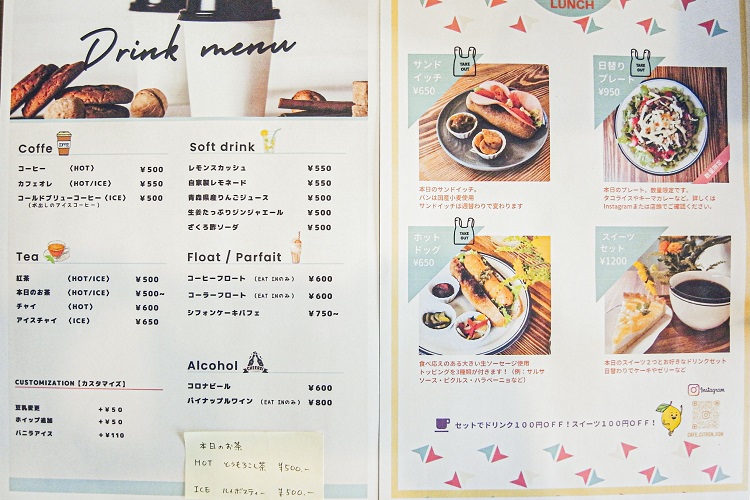 Drink menu
Coffe
COFFEE
コーヒー 〈HOT〉 ¥500
カフェオレ 〈HOT/ICE〉 ¥550
コールドブリューコーヒー〈ICE〉 ¥500
(水出しのアイスコーヒー)
Tea
紅茶 〈HOT/ICE〉 ¥500
本日のお茶 〈HOT/ICE〉 ¥500~
チャイ 〈HOT〉 ¥600
アイスチャイ 〈ICE〉 ¥650
CUSTOMIZATION【カスタマイズ】
豆乳変更 +¥50
ホイップ追加 +¥50
バニラアイス +¥110
Soft drink
レモンスカッシュ ¥550
自家製レモネード ¥550
青森県産りんごジュース ¥500
生姜たっぷりジンジャエール ¥500
ざくろ酢ソーダ ¥500
Float / Parfait
コーヒーフロート (EAT INのみ) ¥600
コーラフロート (EAT INのみ) ¥600
シフォンケーキパフェ ¥750~
Alcohol
CHEERS!
コロナビール ¥600
パイナップルワイン (EAT INのみ) ¥800
本日のお茶
HOT とうもろこし茶 ¥500.-
ICE ルイボスティー ¥500.-
LUNCH
サンド
イッチ
¥650
TAKE
OUT
本日のサンドイッチ。
パンは国産小麦使用
サンドイッチは週替わりで変わります
日替り
プレート
¥950
TAKE
OUT
数量限定
本日のプレート。数量限定です。
タコライスやキーマカレーなど。詳しくは
Instagramまたは店頭でご確認ください。
ホット
ドッグ
¥650
TAKE
OUT
食べ応えのある大きい生ソーセージ使用
トッピングを3種類が付きます!(例:サルサ
ソース・ピクルス・ハラペーニョなど)
スイーツ
セット
¥1200
本日のスイーツ2つとお好きなドリンクセット
日替わりでケーキやゼリーなど
Instagram
セットでドリンク100円OFF!スイーツ100円OFF!